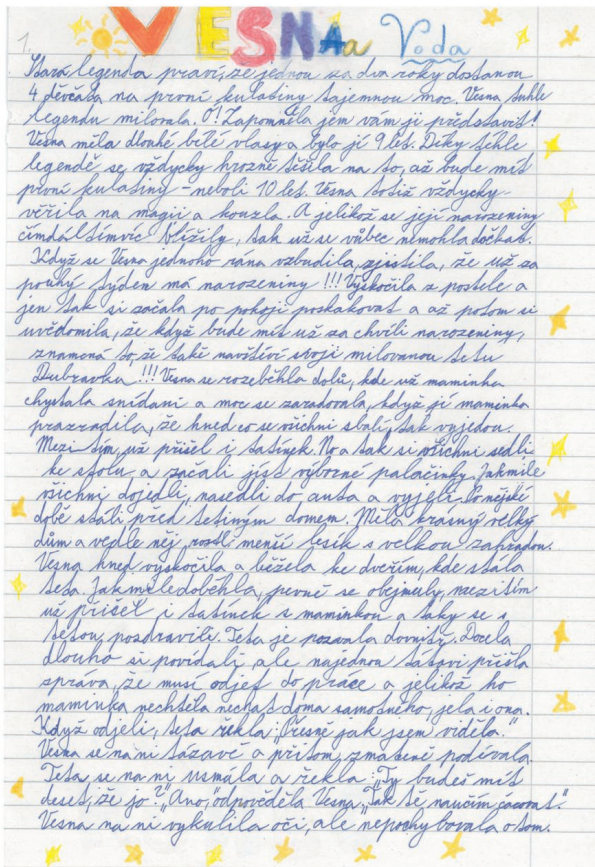 VESNA a Voda
1.
Stará legenda praví, že jednou za dva roky dostanou
4 děvčata na první kulatiny tajemnou moc. Vesna tuhle
legendu milovala. O! Zapomněla jsem vám ji představit!
Vesna měla dlouhé bílé vlasy a bylo jí 9 let. Díky téhle
legendě se vždycky hrozně těšila na to, až bude mít
první kulatiny - neboli 10 let. Vesna totiž vždycky
věřila na magii a kouzla. A jelikož se její narozeniny
čímdál tímvíc blížily, tak už se vůbec nemohla dočkat.
Když se Vesna jednoho rána vzbudila, zjistila, že už za
pouhý týden má narozeniny!!! Vyskočila z postele a
jen tak si začala po pokoji poskakovat a až potom si
uvědomila, že když bude mít už za chvíli narozeniny,
znamená to, že také navštíví svoji milovanou tetu
Dubravku!!! Vesna se rozeběhla dolů, kde už maminka
chystala snídani a moc se zaradovala, když jí maminka
prozradila, že hned co se všichni sbalí, tak vyjedou.
Mezi tím, už přišel i tatínek. No a tak si všichni sedli
ke stolu a začali jíst výborné palačinky. Jakmile
všichni dojedli, nasedli do auta a vyjeli. Po nějaké
době stáli před tetiným domem. Měla krásný velký
dům a vedle něj rostl menší lesík s velkou zahradou.
Vesna hned vyskočila a běžela ke dveřím, kde stála
teta. Jakmile doběhla, pevně se objmuly, mezitím
už přišel i tatínek s maminkou a taky se s
tetou pozdravili. Teta je pozvala dovnitř. Docela
dlouho si povídali, ale najednou tátovi přišla
správa, že musí odjet do práce a jelikož ho
maminka nechtěla nechat doma samotného, jela i ona.
Když odjeli, teta řekla: „Přesně jak jsem viděla."
Vesna se na ni tázavě a přitom zmateně podívala.
Teta se na ni usmála a řekla: „Ty budeš mít
deset, že jo?" „Ano," odpověděla Vesna. „Tak tě naučím čarovat".
Vesna na ni vykulila oči, ale nepochybovala o tom.